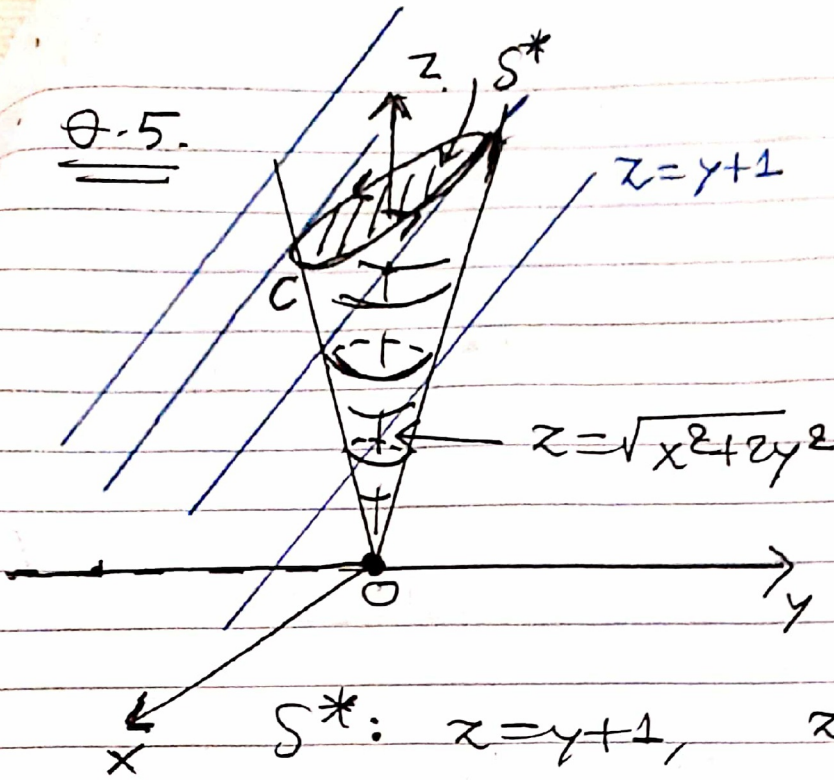 Q.5.
z
S*
z=y+1
C
z=√x²+2y²
O
y
x
S*: z=y+1, z